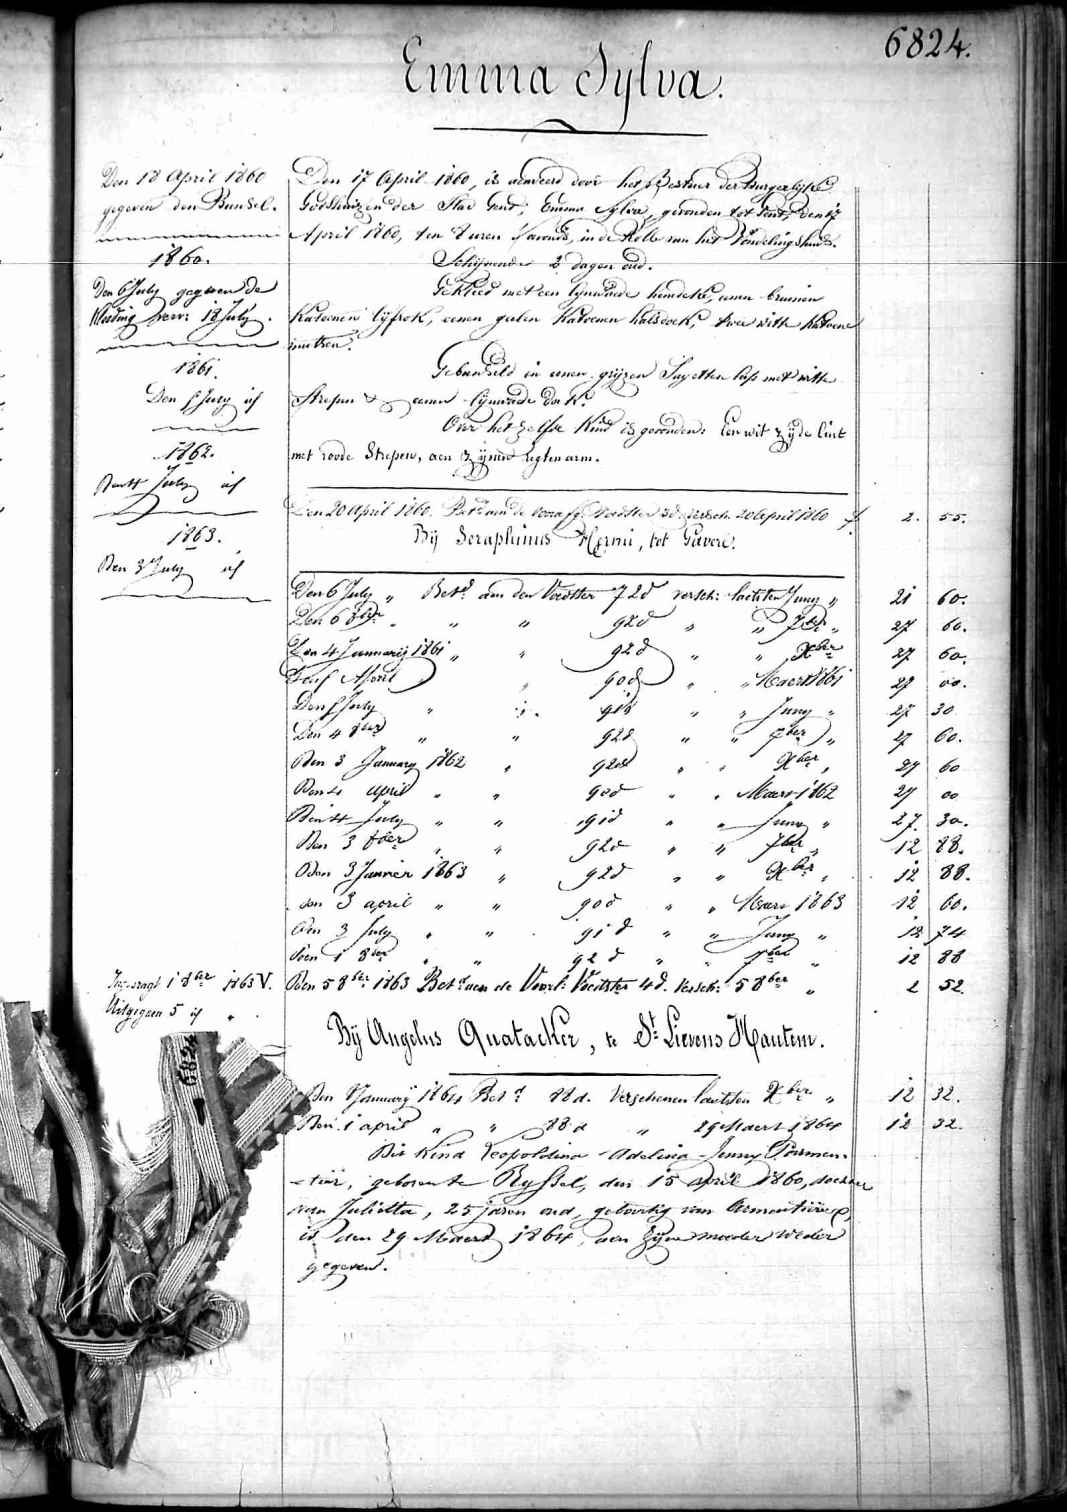 6824.
Emma Sylva.
Den 18 April 1860
gegeven den Bunsel.
1860.
Den 6 July gegeven de
Kleeding 18 July.
1861.
Den 5 July id
1862.
Den 4 July id
1863.
Den 3 July id
Den 17 April 1860, is aenveerd door het Bestuer der Burgerlyke
Godshuizen der Stad Gent, Emma Sylva, gevonden tot Gent, den 17
April 1860, ten 8 uren 's avonds, in de Rolle van het Vondelingshuis.
Schynende 2 dagen oud.
Gekleed met een lynwaede hemdeke, eenen bruinen
Katoenen lyfrok, eenen geelen Katoenen halsdoek, twee witte Katoene
mutsen.
Gebunseld in eenen gryzen Sayetten lap met witte
Strepen & eenen lynwaede doek.
Over het zelfde Kind is gevonden: Een wit zyde lint
met roode Strepen, aen zynen regten arm.
Den 20 April 1860. Bet. aen de Voedster 3 d. versch. 20 April 1860 f. 2. 55.
By Seraphinus Hermi, tot Gavere.
Den 6 July " Betd. aen den Voedster 72 d versch: laetsten Juny " 21 60.
Den 6 8ber " " " 92 d " " 7ber " 27 60.
Den 4 January 1861 " " 92 d " " Xber 27 60.
Den 5 April " 90 d " " Maert 1861 27 00.
Den 5 July " " 91 d " " Juny " 27 30
Den 4 8ber " " 92 d " " 7ber " 27 60.
Den 3 January 1862 " 92 d " " Xber " 27 60
Den 4 april " " 90 d " " Maert 1862 27 00
Den 4 July " " 91 d " " Juny " 27. 30.
Den 3 8ber " " 92 d " " 7ber " 12 88.
Den 3 Janvier 1863 " 92 d " " Xber " 12 88.
den 3 april " " 90 d " " Maert 1863 12 60.
den 3 July " " 91 d " " Juny " 12 74
den 1 8ber " " 92 d " " 7ber " 12 88
Ingebragt 1 8ber 1863 V.
Uitgegaen 5 id "
Den 5 8ber 1863 Betd aen de Voorl: Voedster 4 d. versch: 5 8ber " 2 52.
By Angelus Quatacker, te St. Lievens Hautem.
6824
Den 8 January 1864 Betd 88 d. Verschenen laetsten Xber " 12 32.
Den 1 april " " 88 d " 29 Maert 1864 12 32.
Dit Kind Leopoldina Adelina Jenny Parmen-
-tier, geboren te Ryssel, den 15 april 1860, dochter
van Julietta, 25 jaren oud, geboortig van Armentières,
is den 29 Maert 1864, aen zyne moeder weder
gegeven.